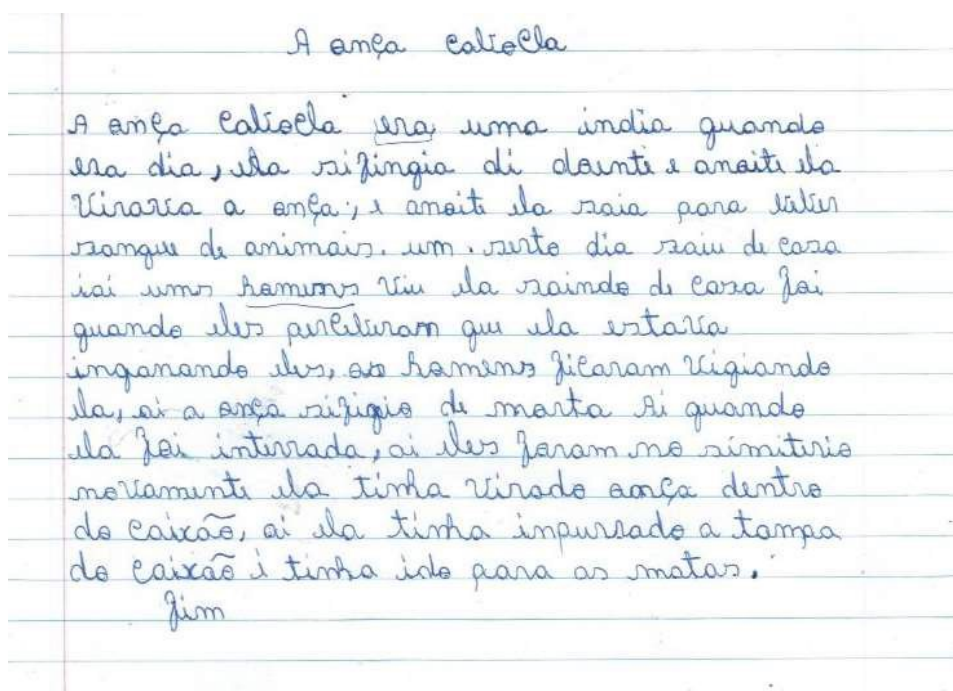 A onça caliocla
A onça Caliocla era uma india quando
era dia, ela sifingia di doente e anoite ela
Virava a onça; e anoite ela saia para beber
sangue de animais. um. serto dia saiu de casa
iai ums homens viu ela saindo de casa foi
quando eles perceberam que ela estava
inganando eles, os homens ficaram vigiando
ela, ai a onça sifigio de morta Ai quando
ela foi interrada, ai eles foram no simiterio
novamente ela tinha virado onça dentro
do caixão, ai ela tinha inpurrado a tampa
do caixão i tinha ido para as matas.
fim